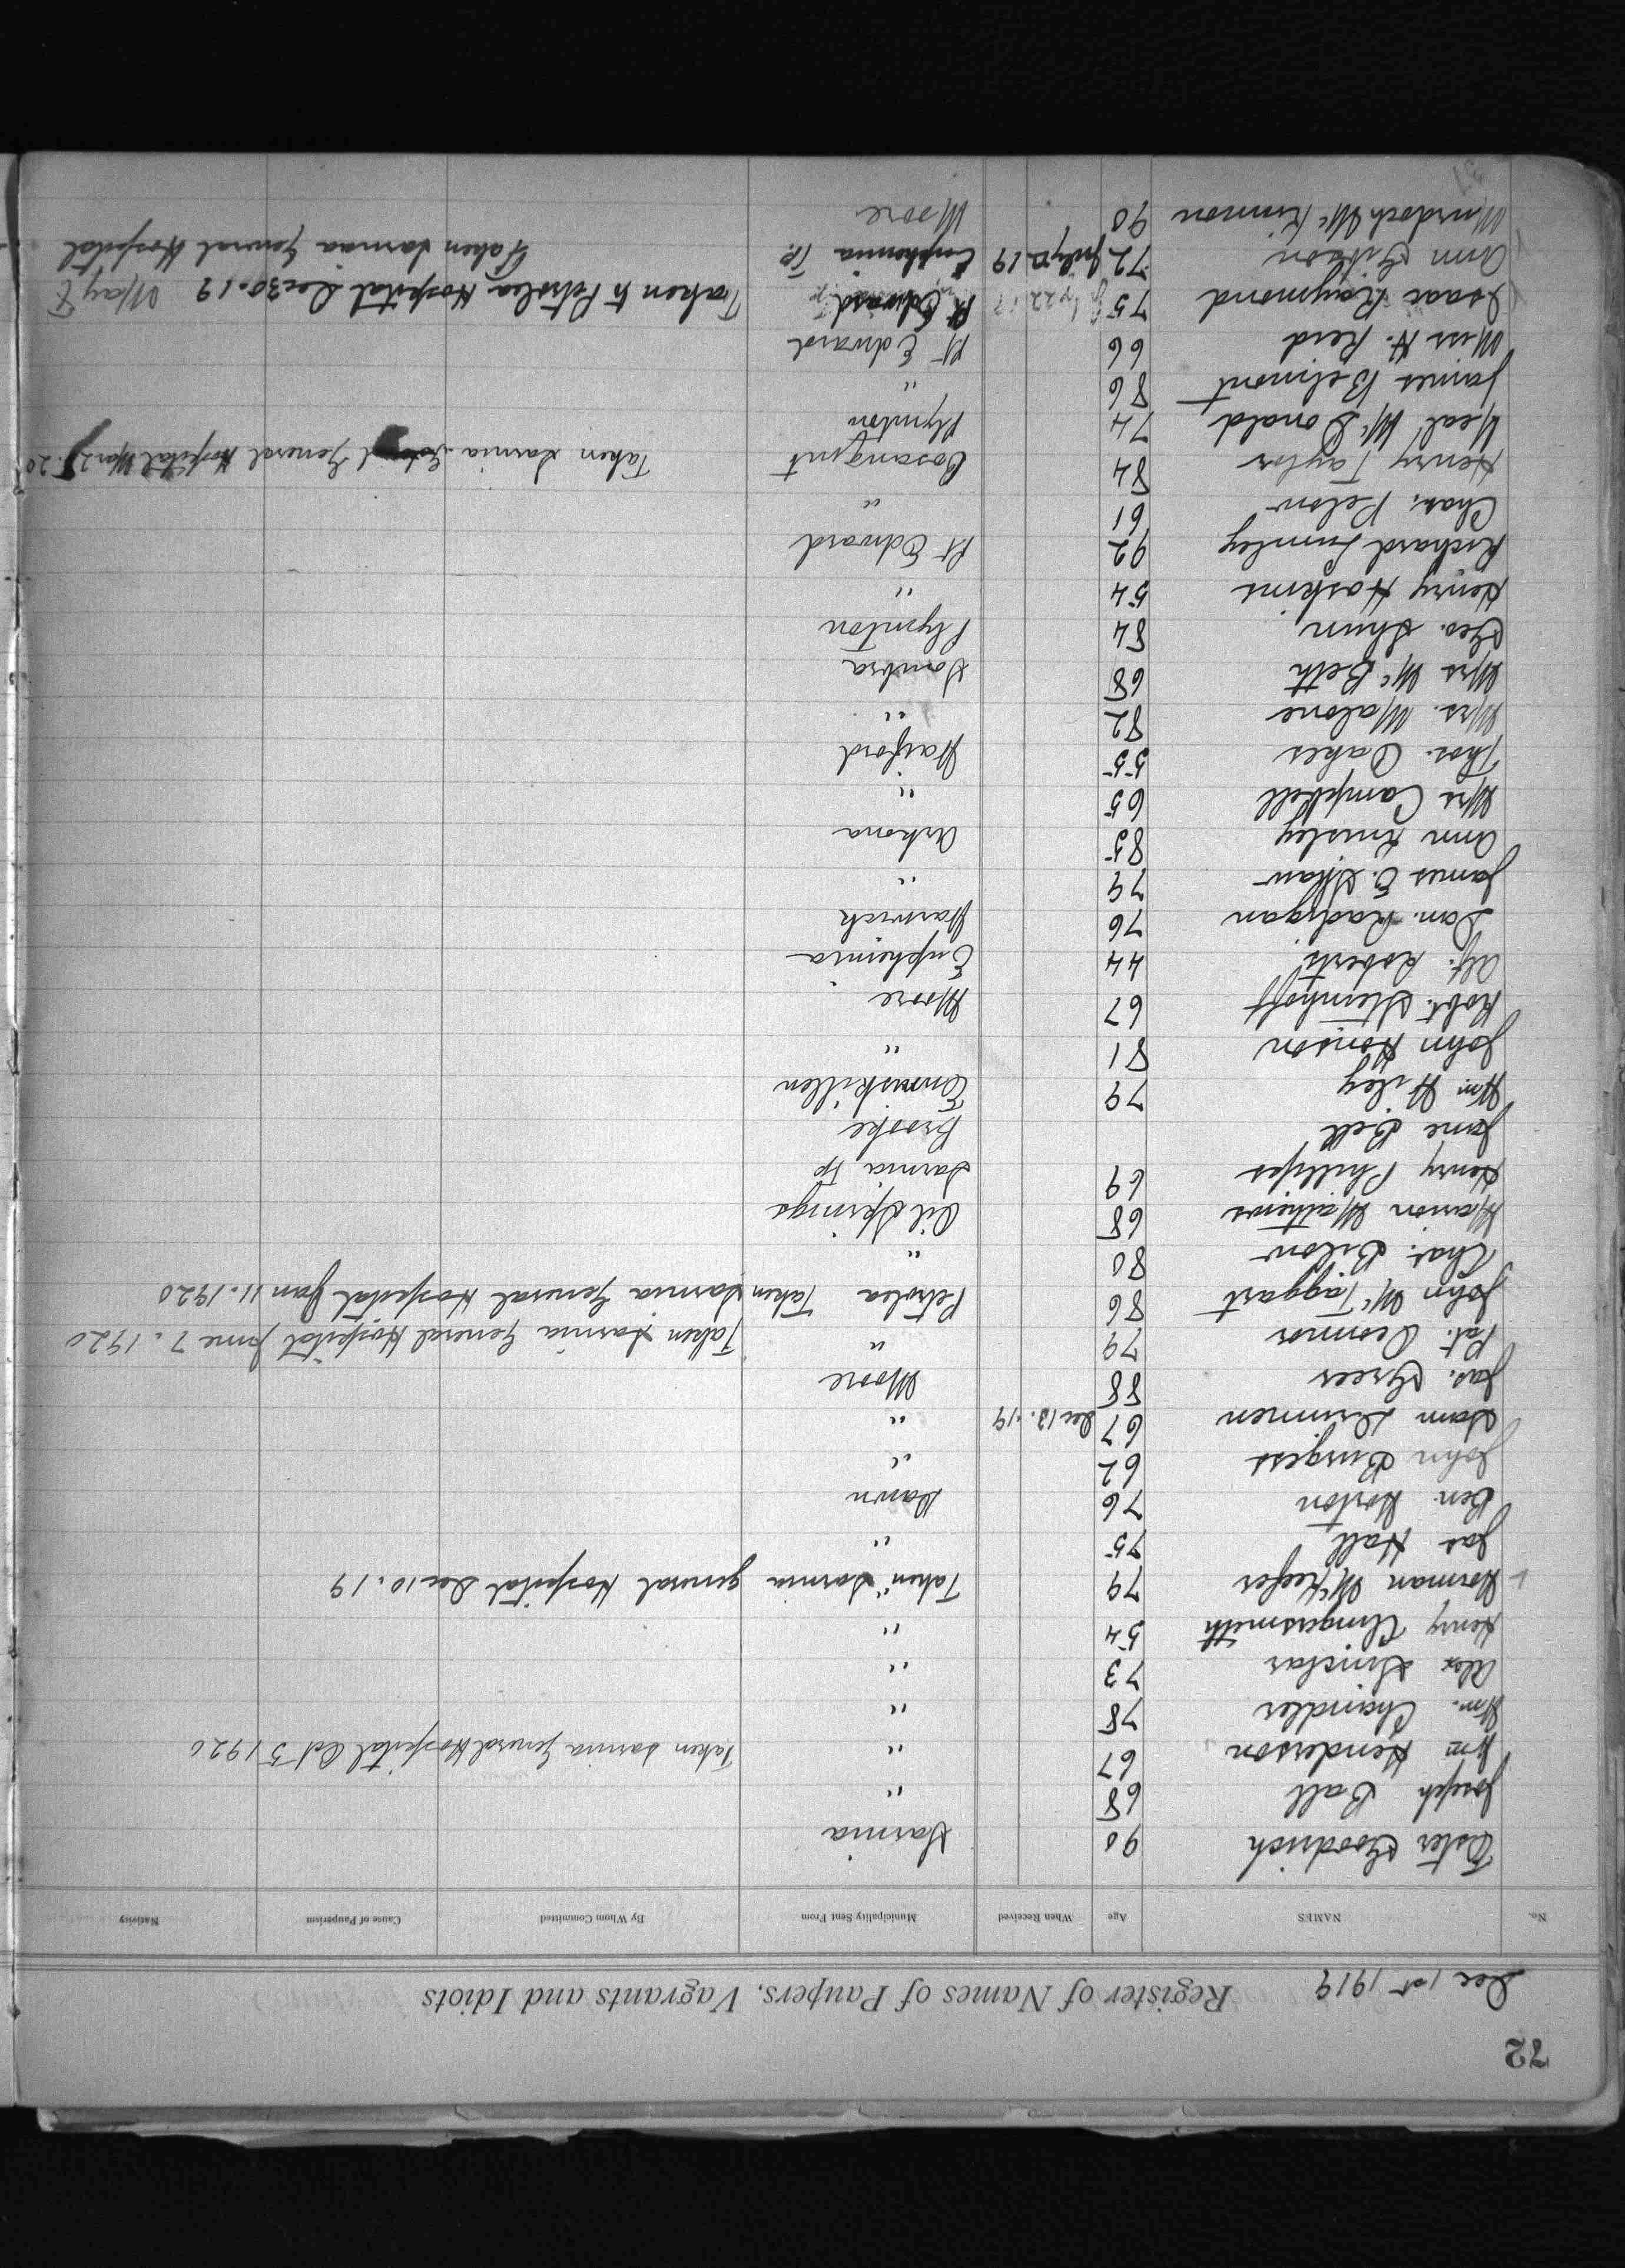 72
Dec 1st 1919 Register of Names of Paupers, Vagrants and Idiots
No. NAMES Age When Received Municipality Sent From By Whom Committed Cause of Pauperism Nativity
Ester Goodrich 90 Sarnia
Joseph Ball 68 "
Wm Henderson 67 " Taken Sarnia General Hospital Oct 5 1920
Wm. Chandler 78 "
Alex Sinclar 73 "
Henry Clingersmith 54 "
Norman McKeefer 79 " Taken Sarnia general Hospital Dec 10. 19
Jas Hall 75 "
Ben. Horton 76 Dawn
John Burgess 62 "
Sam Dinnen 67 Dec 13. 19 "
Jas. Greer 88 Moore
Pat. Oconnor 79 " Taken Sarnia General Hospital June 7. 1920
John McTaggart 86 Petrolea Taken Sarnia General Hospital Jan 11. 1920
Chas. Bilow 80 "
Marion Mathews 68 Oil Springs
Henry Phillips 69 Sarnia Tp
Jane Bell Brooke
Wm. Wiley 79 Enniskillen
John Honson 81 "
Robt. Steinhoff 67 Moore
Alf. Roberts 44 Euphemia
Dan. Radigan 76 Warwick
James E. Shaw 79 "
Ann Kinsley 85 Arkona
Mrs Campbell 65 "
Thos. Oakes 55 Watford
Mrs. Malone 82 "
Mrs McBeth 68 Sombra
Geo. Shun 84 Plymton
Henry Hoskins 54 "
Richard Lumley 92 Pt Edward
Chas. Pelow 61 "
Henry Taylor 84 Bosanqut Taken Sarnia General Hospital Mar 25. 20
Neal McDonald 74 Plymton
James Belmont 86 "
Miss H. Reid 66 Pt Edward
Isaac Raymond 75 July 22 Pt Edward Taken to Petrolea Hospital Dec 30. 19 May 8
Ann Gibson 72 July 22. 19 Euphemia Tp. Taken Sarnia General Hospital
Murdoch McKinnon 90 Moore
37